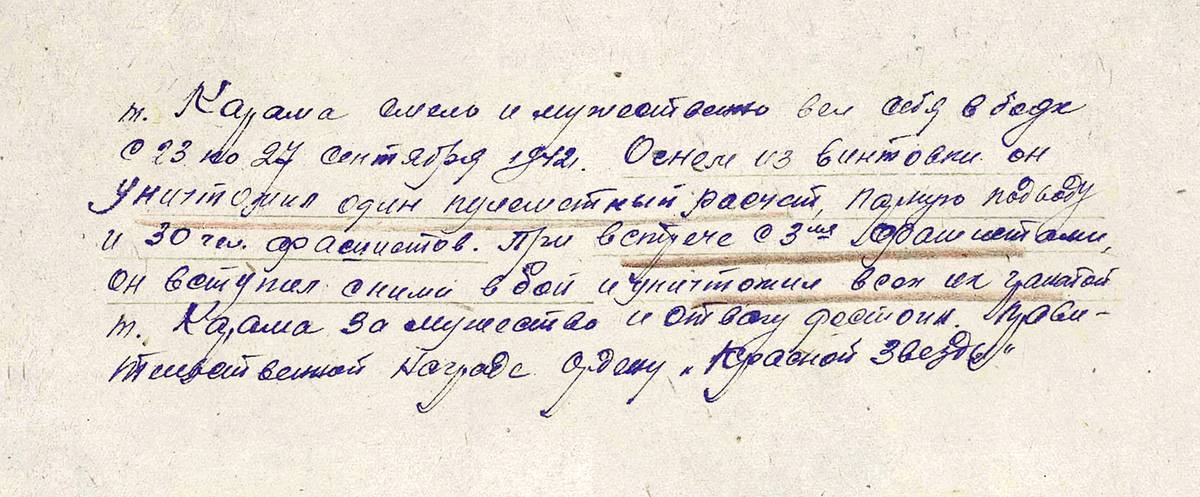 т. Карама смело и мужественно вел себя в боях
с 23 по 27 сентября 1942г. Огнем из винтовки он
уничтожил один пулеметный расчет, парную подводу
и 30 чел. фашистов. При встрече с 3мя фашистами,
он вступил с ними в бой и уничтожил всех их гранатой
т. Карама за мужество и отвагу достоин. Прави-
тельственной Награде ордену „Красной Звезды"